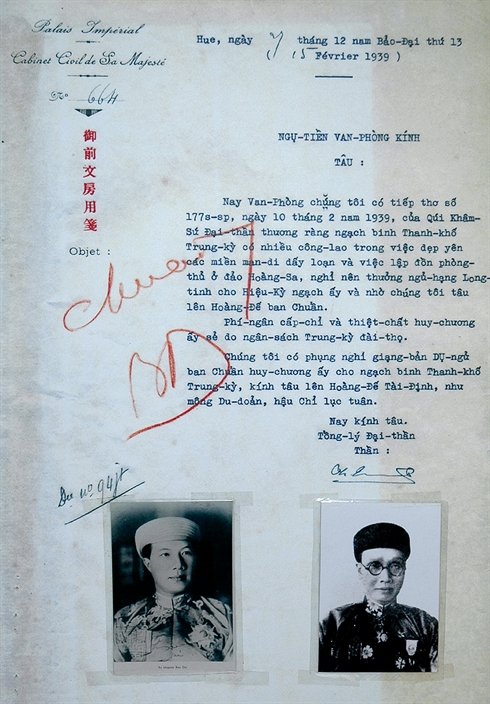 Palais Impérial
Cabinet Civil de Sa Majesté
No 664
御前文房用箋
Objet :
Hue, ngày 27 tháng 12 nam Bảo-Đại thứ 13
( 15 Février 1939 )
NGỰ-TIỀN VAN-PHÒNG KÍNH
TÂU :
Nay Van-Phòng chúng tôi có tiếp thơ số
177s-sp, ngày 10 tháng 2 nam 1939, của Qúi Khâm-
Sứ Đại-thần thương ràng ngạch binh Thanh-khố
Trung-kỳ có nhiều công-lao trong việc dẹp yên
các miền man-di dấy loạn và việc lập đồn phòng-
thủ ở đảo Hoàng-Sa, nghỉ nên thưởng ngủ-hạng Long-
tinh cho Hiệu-Kỳ ngạch ấy và nhờ chúng tôi tâu
lên Hoàng-Đế ban Chuẩn.
Phí-ngân cấp-chỉ và thiệt-chất huy-chương
ấy sẻ do ngân-sách Trung-kỳ đài-thọ.
Chúng tôi có phụng nghỉ giạng-bản Dụ-ngử
ban Chuẩn huy-chương ấy cho ngạch binh Thanh-khố
Trung-kỳ, kính tâu lên Hoàng-Đế Tài-Định, như
mông Du-doản, hậu Chỉ lục tuân.
Nay kính tâu.
Tổng-lý Đại-thần
Thần :
Chuẩn
BĐ
Dụ no 94